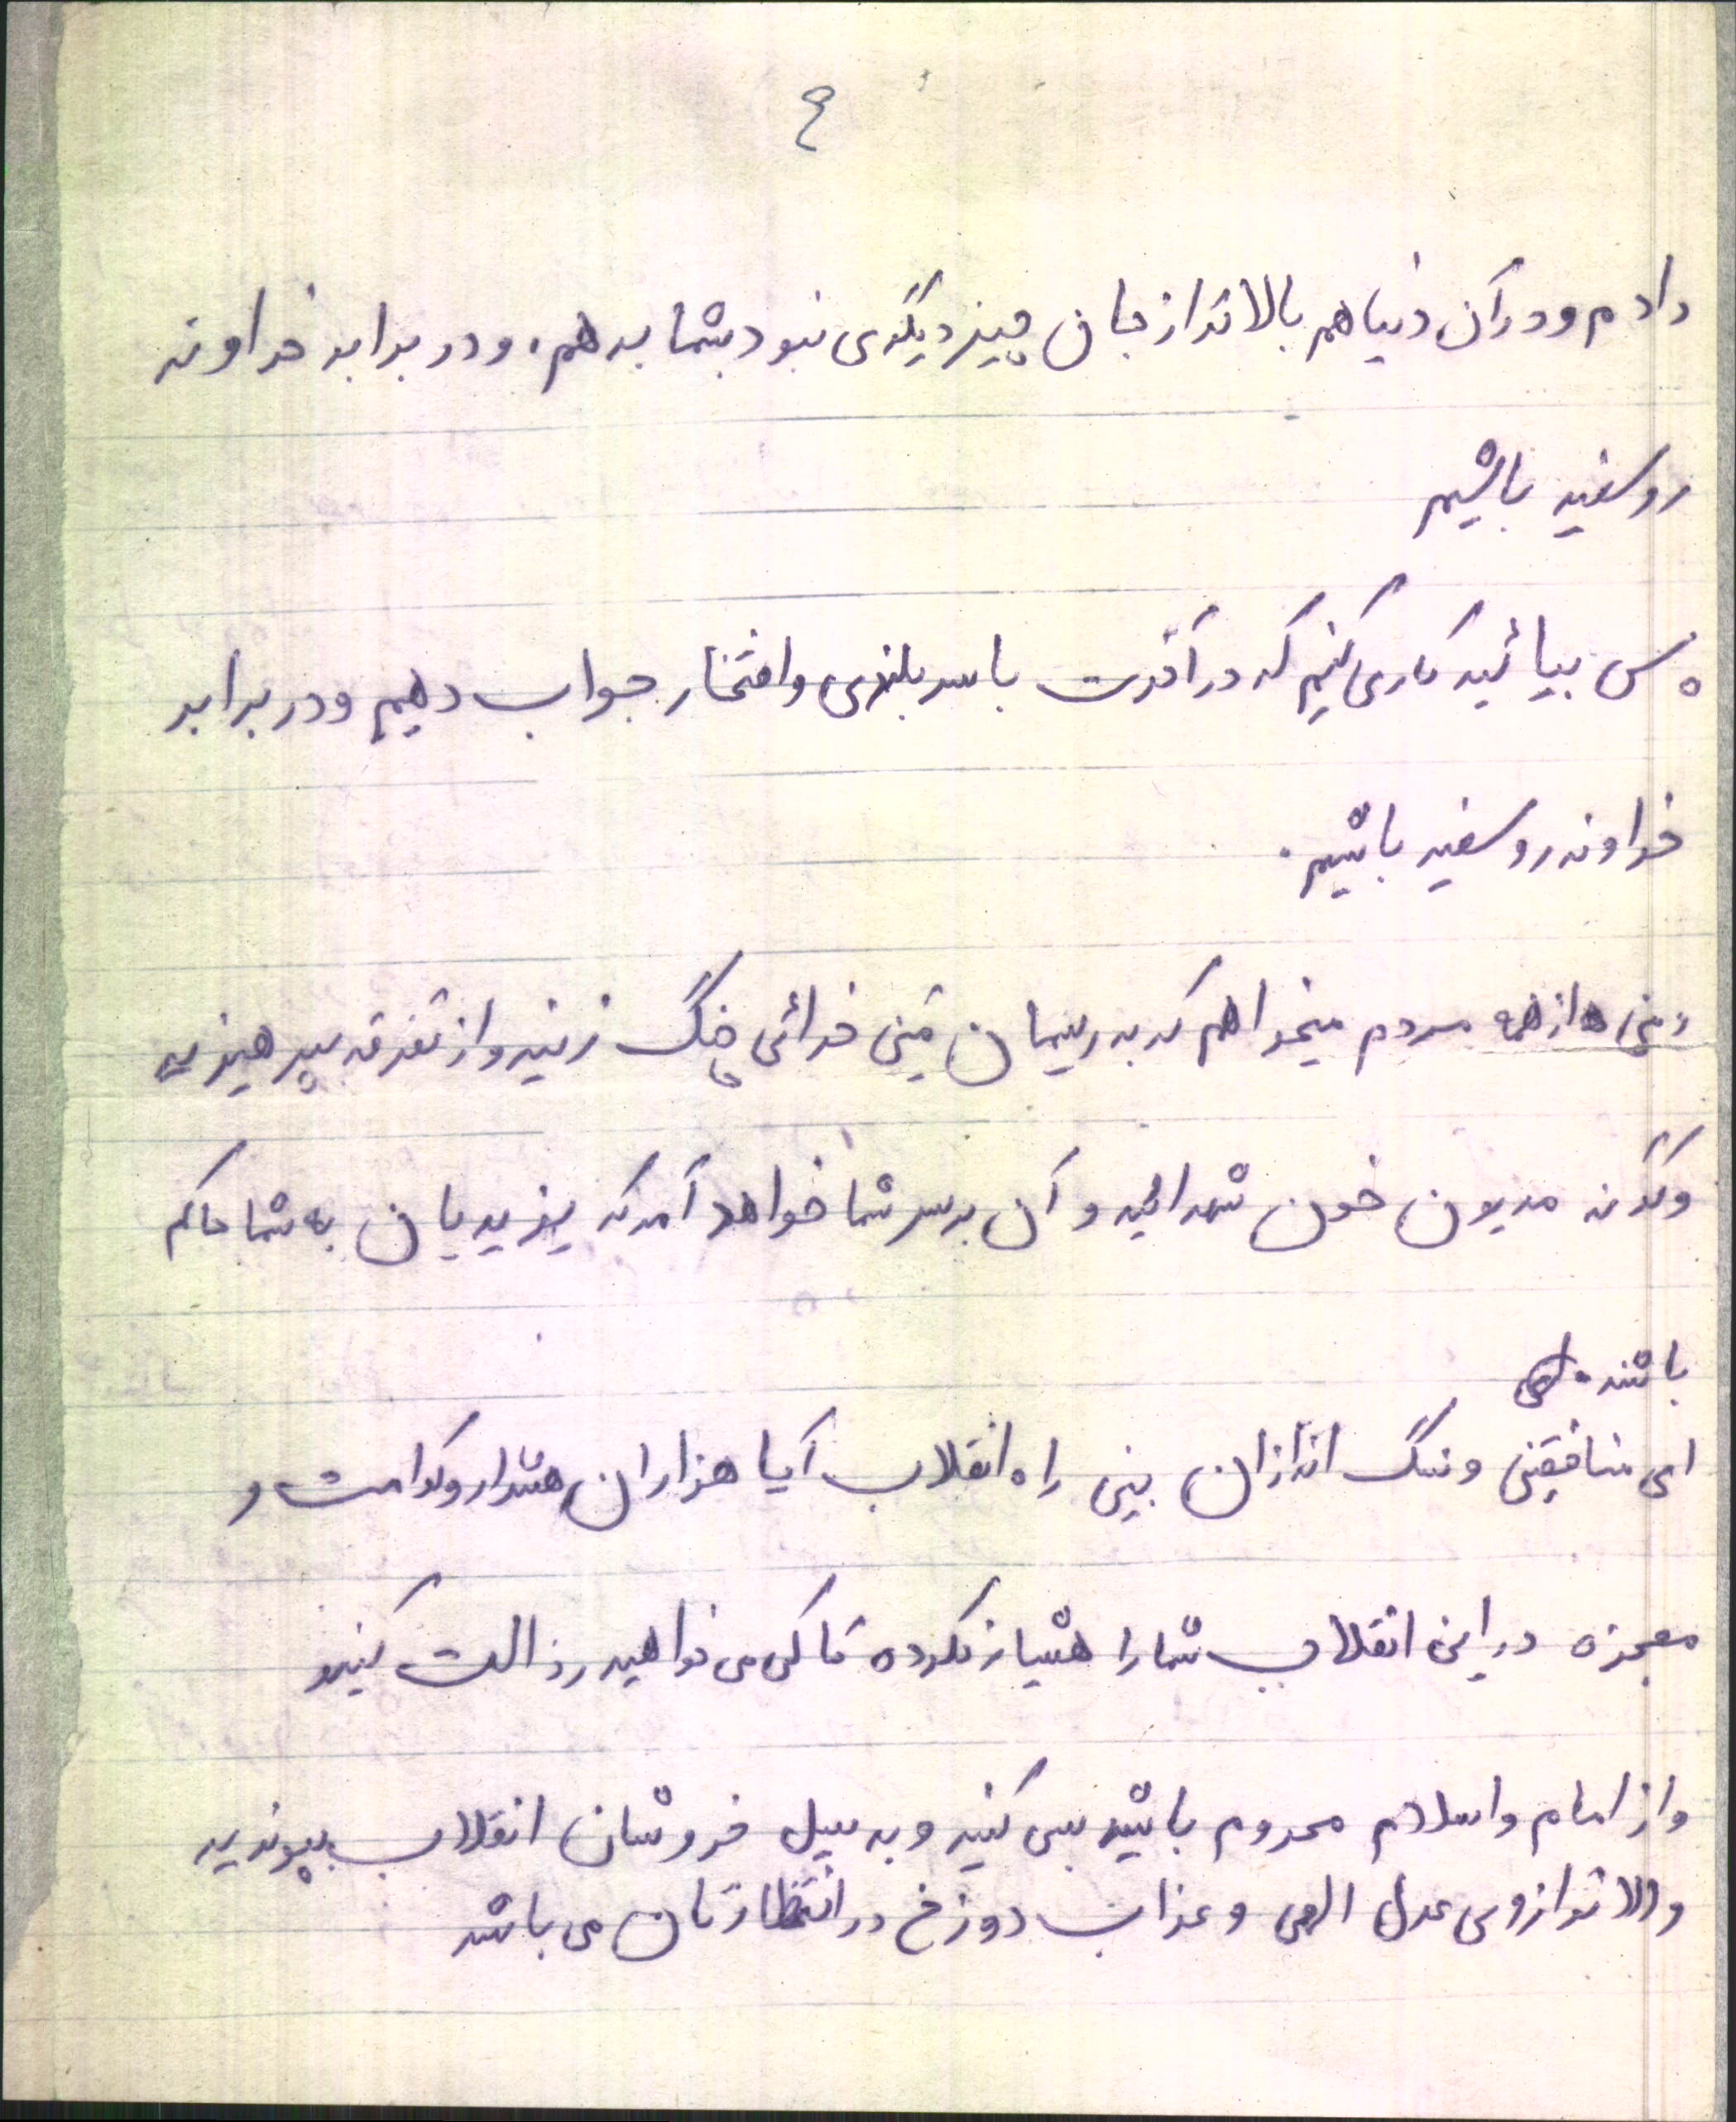 ۴
دادم و در آن دنیا هم بالاتر از جان چیز دیگری نبود بشما بدهم. و در برابر خداوند
روسفید باشیم
پس بیائید کاری کنیم که در آخرت با سربلندی و افتخار جواب دهیم و در برابر
خداوند روسفید باشیم.
از همه مردم میخواهم که به ریسمان متین خدائی چنگ زنید و از تفرقه بپرهیزید
وگرنه مدیون خون شهدائید و آن بر سر شما خواهد آمد که یزیدیان به شما حاکم
باشند.
ای منافقین و سنگ اندازان بین راه انقلاب آیا هزاران هشدار و کرامت و
معجزه در این انقلاب شما را هشیار نکرده تا کی می خواهید رذالت کنید
و از امام و اسلام محروم باشید بس کنید و به سیل خروشان انقلاب بپیوندید
والا ترازوی عدل الهی و عذاب دوزخ در انتظارتان می باشد